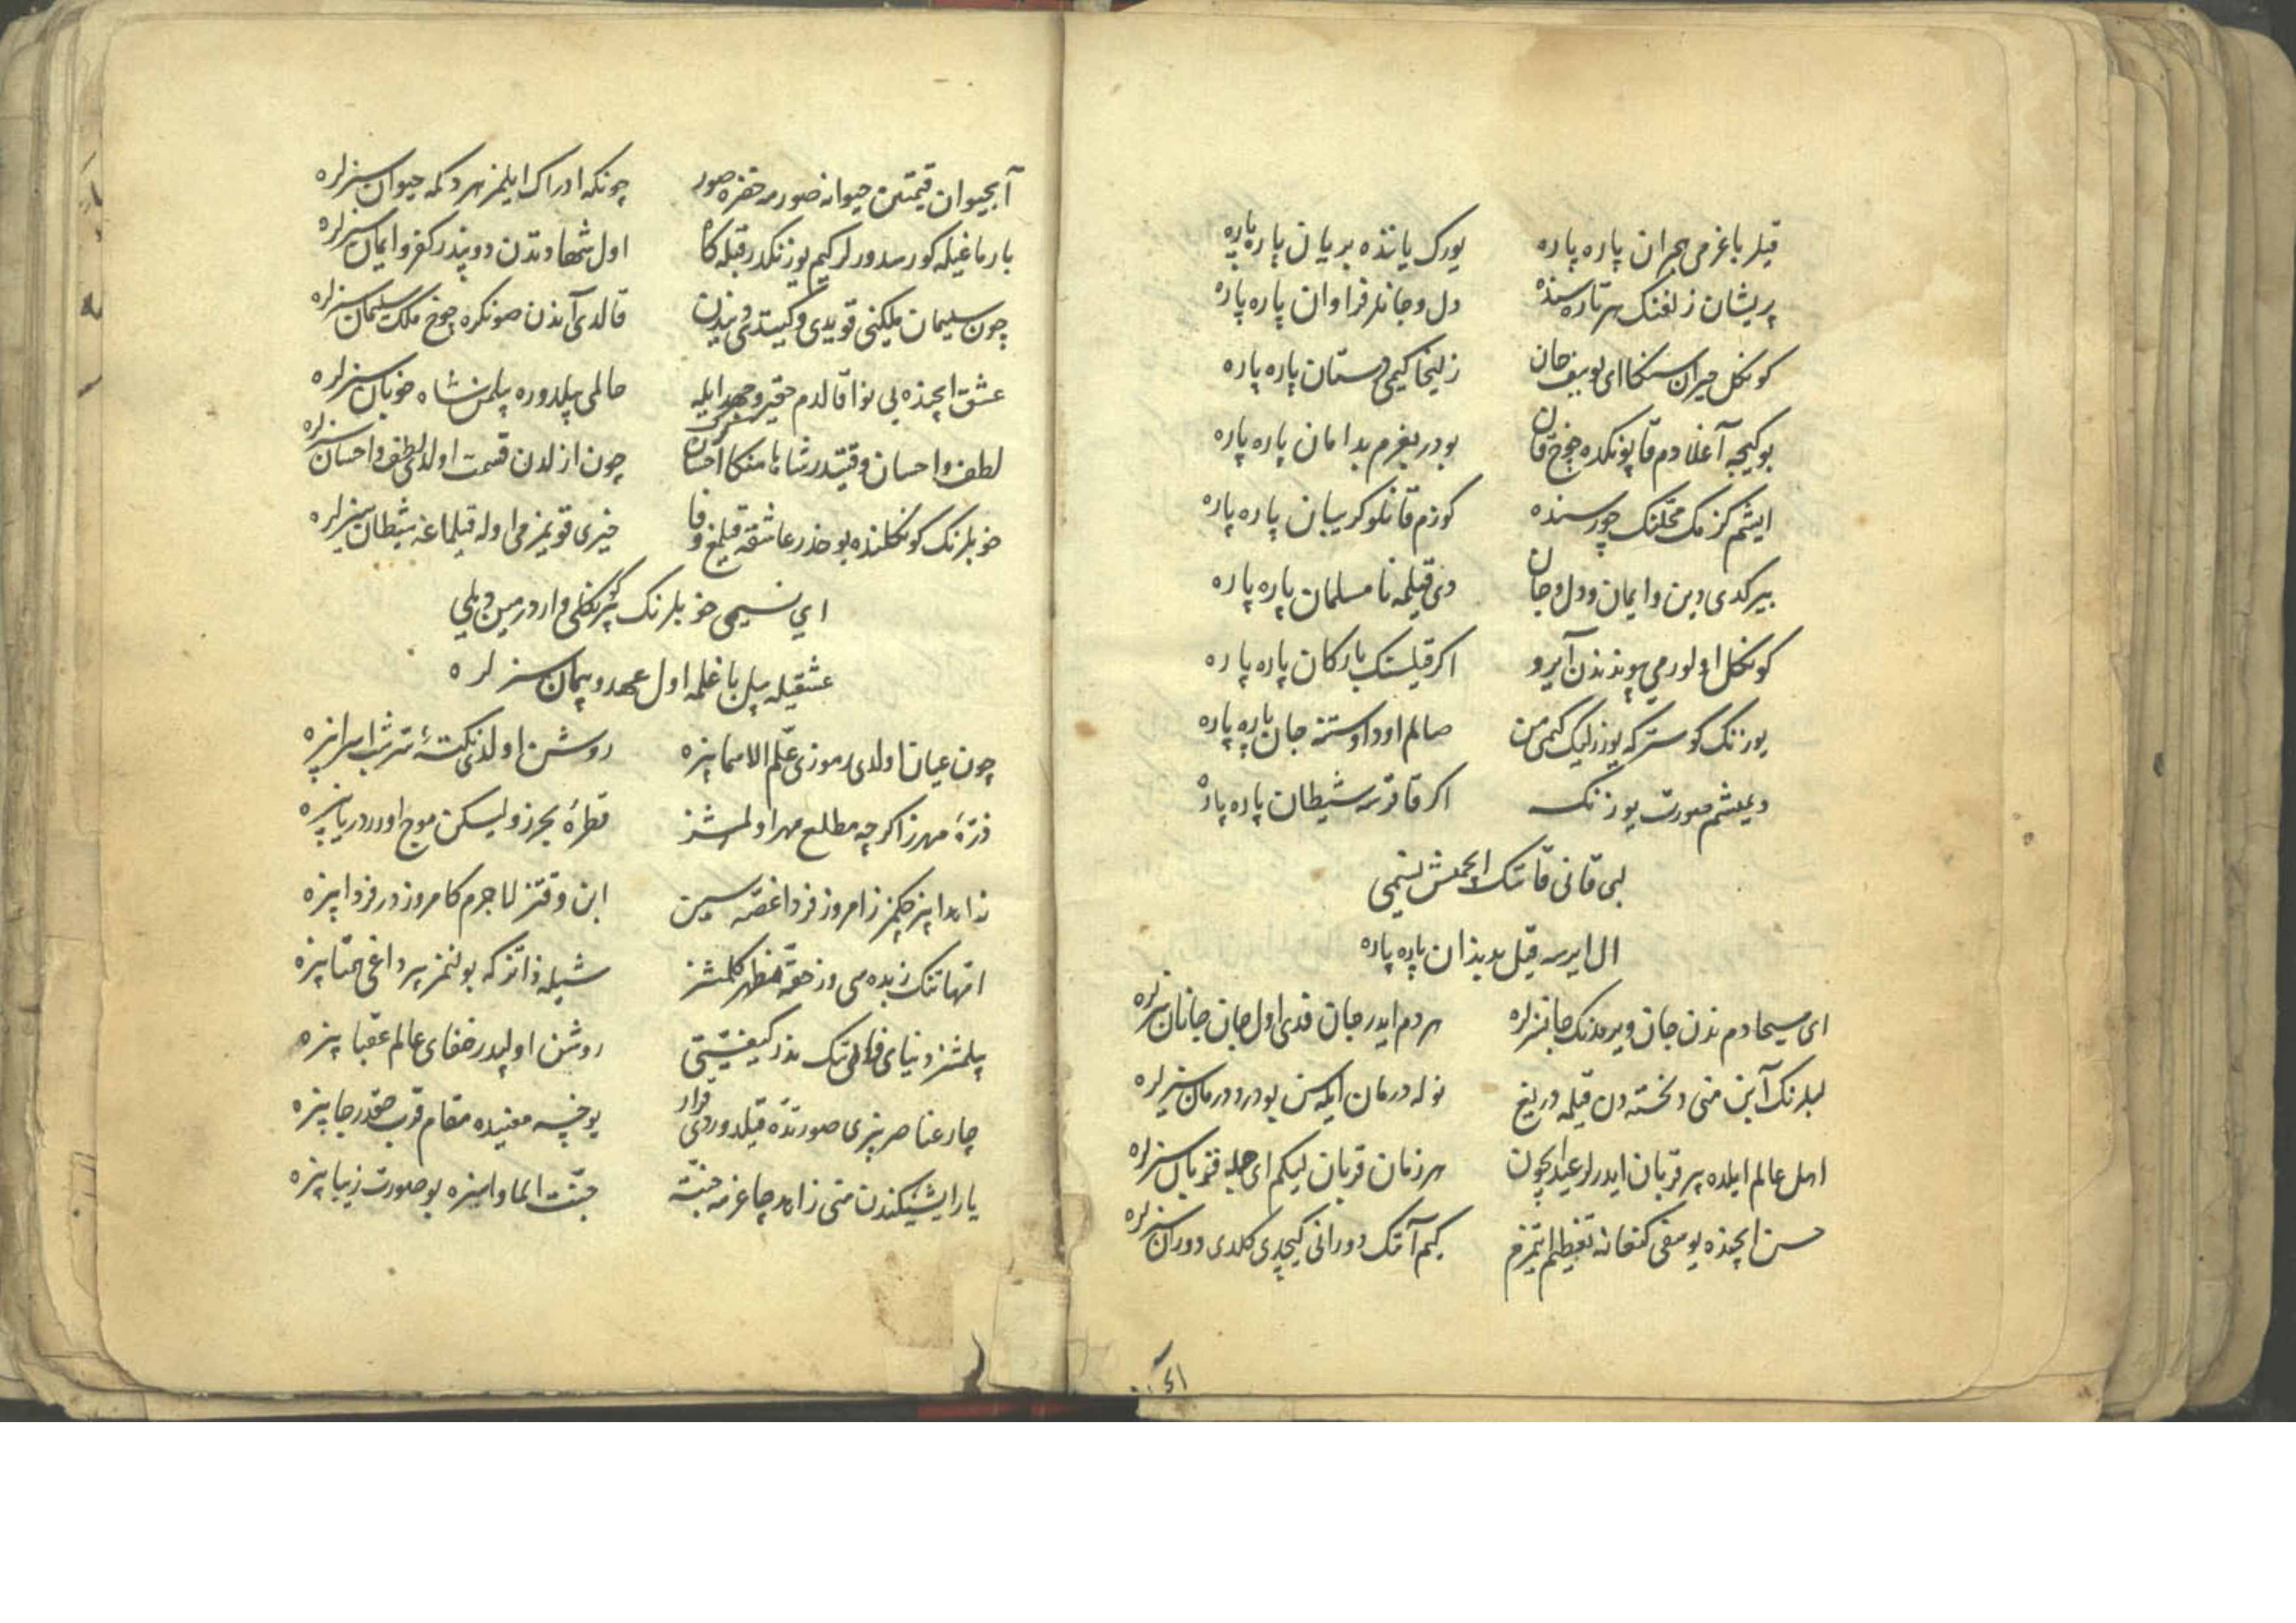 قیلر باغرمی هجران پاره پاره یورک یانذه بریان پاره پاره
پریشان زلفنک هر تاره سنده دل و جانلر فراوان پاره پاره
کونکل حیران سنکا ای یوسف جان زلیخا کیمی دستان پاره پاره
بو کیجه آغلادم قاپونکده چوخ قان بودر یغرم بدامان پاره پاره
ایشم کزمک محلنک چورسنده کوزم قانلو کریبان پاره پاره
بیرکدی دین و ایمان و دل و جان دی قیلمه نا مسلمان پاره پاره
کونکل اولورمی پوندندن آیرو اکر قیلسنک یارکان پاره پاره
یوزنک کوستر که یوزرلیک کیمی من صالم اود اوسته جان پاره پاره
دیمیشم صورت یوزنک اکر قاقرسه شیطان پاره پاره
لبی قانی قاتنک ایچمش نسیمی
ال ایرسه قیل بدندان پاره پاره
ای مسیحا دم ندن جان ویرمدنک جانسزلره هر دم ایدر جان فدی اول جان جانان سزلره
لبلرنک آبن منی دلخسته دن قیلمه دریغ نوله درمان ایله سن بو درد درمان سزلره
اهل عالم ایلده بیر قربان ایدرلر عید ایچون هر زمان قربان لیکم ای جمله قربان سزلره
حسن ایچنده یوسفی کنعانه تعظیم ایتمزم کیم آنک دورانی کیچدی کلدی دوران سزلره
آبحیوان قیمتین حیوانه صورمه خضره صور چونکه ادراک ایلمز هر دکمه حیوان سزلره
بارماغیله کورسدورلر کیم یوزنکدر قبله کاه اول شهادتدن دونپدر کفر و ایمان سزلره
چون سلیمان ملکنی قویدی و کیتدی دنیدن قالدی آندن صونکره چوخ ملک سلیمان سزلره
عشق ایچنده بی نوا قالدم حقیر و هجر ایله حالمی بیلدوره بیلمن شاه خوبان سزلره
لطف و احسان وقتیدر شاها منکا احسان چون ازلدن قسمت اولدی لطف و احسان سزلره
خوبلرنک کونکلنده یوخدر عاشقه قیلمغ وفا خیری قویمزمی اوله قیلماغه شیطان سزلره
ای نسیمی خوبلرنک کونکلی واردر مین دیلی
عشقیله بیل باغلمه اول عهد و پیمان سزلره
چون عیان اولدی رموزی علم الاسما بیزه روشن اولدی نکتهٔ سر شب اسرا بیزه
ذرهٔ مهرز اکرچه مطلع مهر اولمشز قطرهٔ بحرز ولیکن موج اورر دریا بیزه
زاهدا بیز چکمز ز امروز فردا غصه سین ابن وقتز لاجرم کامروزدر فردا بیزه
انهاتنک زبده سی وز حقه مظهر کلمشز شیله ذاتز که بولنمز بیر داغی همتا بیزه
بیلمشز دنیای فانی تک ندر کیفیتی روشن اولپدر صفای عالم عقبا بیزه
چار عناصر بیزی صورتده قیلدوردی قرار یوخسه معنیده مقام قرب حقدر جا بیزه
یار ایشیکندن منی زاهد چاغرمه جنته جنت الماوا بیزه بو صورت زیبا بیزه